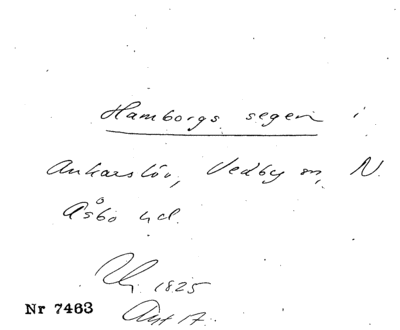 Hamborgs segen i
Ankarslöv, Vedby sn, N.
Åsbo hd.
1825
Nr 7463